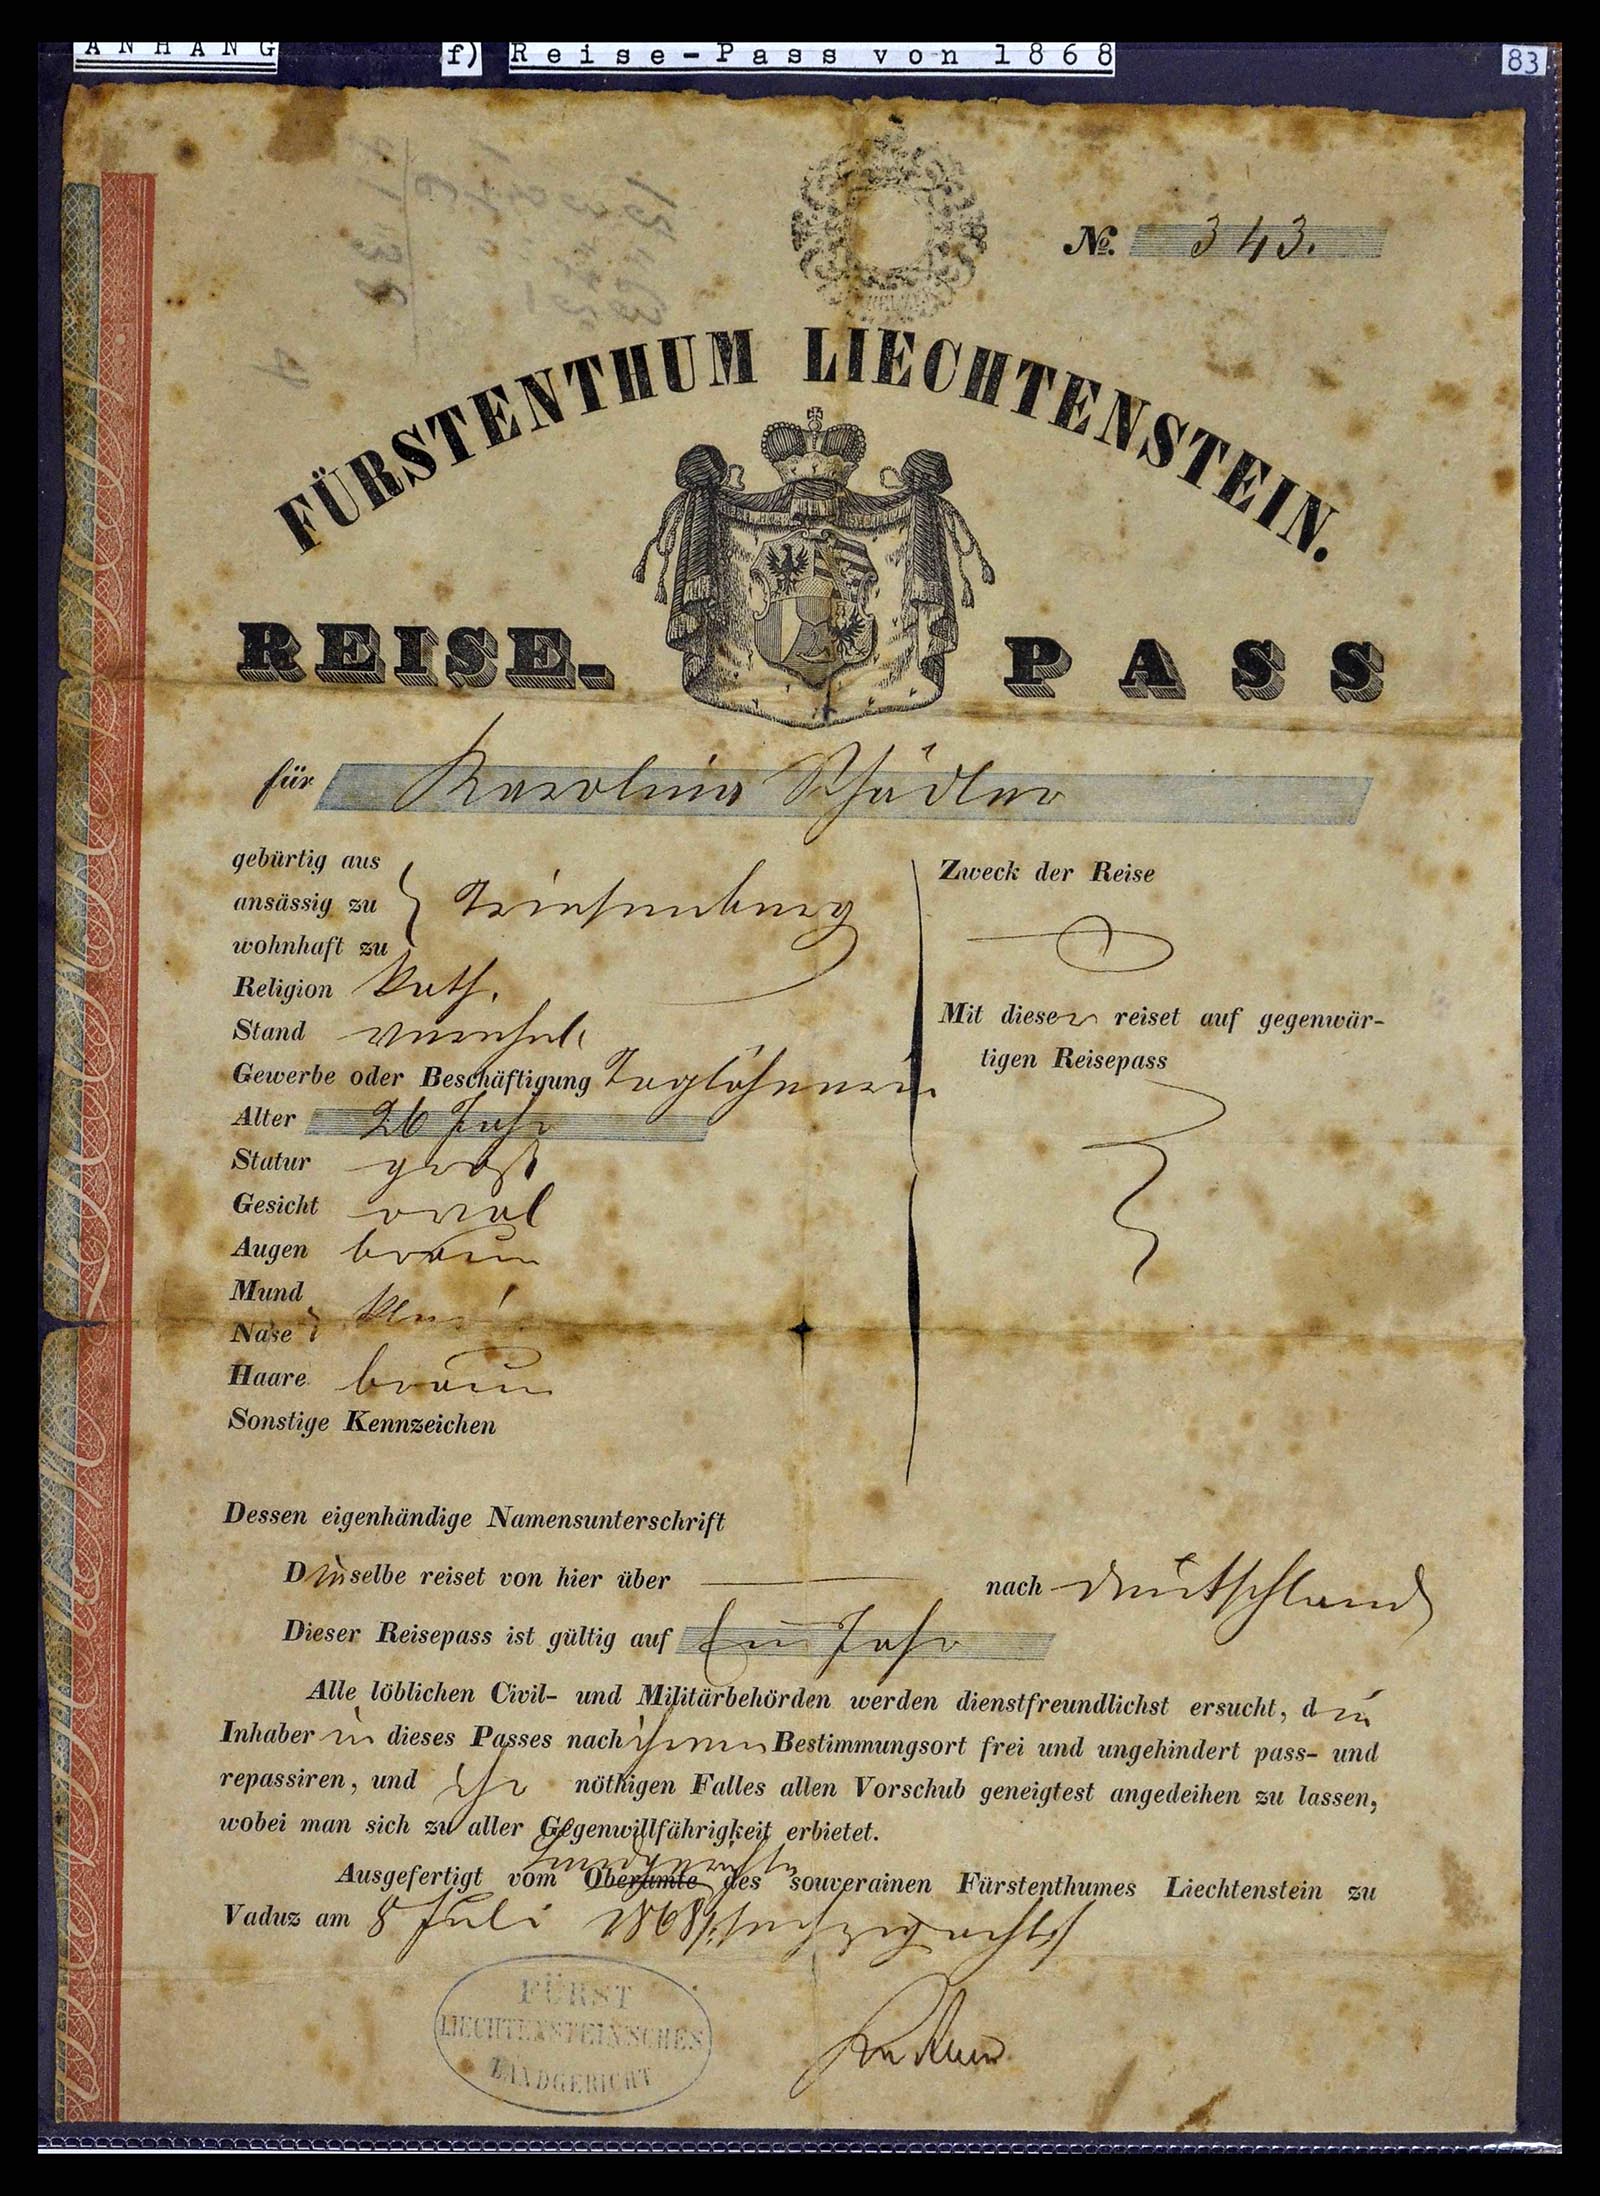 ANHANG f) Reise-Pass von 1868 83
No. 343.
FÜRSTENTHUM LIECHTENSTEIN.
REISE- PASS
für Karolina Schädler
gebürtig aus
ansässig zu Triesenberg
wohnhaft zu
Religion kath.
Stand
Gewerbe oder Beschäftigung Taglöhnerin
Alter 26 Jahr
Statur groß
Gesicht oval
Augen braun
Mund
Nase klein
Haare braun
Sonstige Kennzeichen
Zweck der Reise
Mit dieser reiset auf gegenwär-
tigen Reisepass
Dessen eigenhändige Namensunterschrift
Dieselbe reiset von hier über — nach Deutschland
Dieser Reisepass ist gültig auf Ein Jahr
Alle löblichen Civil- und Militärbehörden werden dienstfreundlichst ersucht, die
Inhaberin dieses Passes nach ihrem Bestimmungsort frei und ungehindert pass- und
repassiren, und ihr nöthigen Falles allen Vorschub geneigtest angedeihen zu lassen,
wobei man sich zu aller Gegenwillfährigkeit erbietet.
Landgerichte
Ausgefertigt vom Oberamte des souverainen Fürstenthumes Liechtenstein zu
Vaduz am 8 Juli 1868 sechzigacht
FÜRST
LIECHTENSTEIN'SCHES
LANDGERICHT